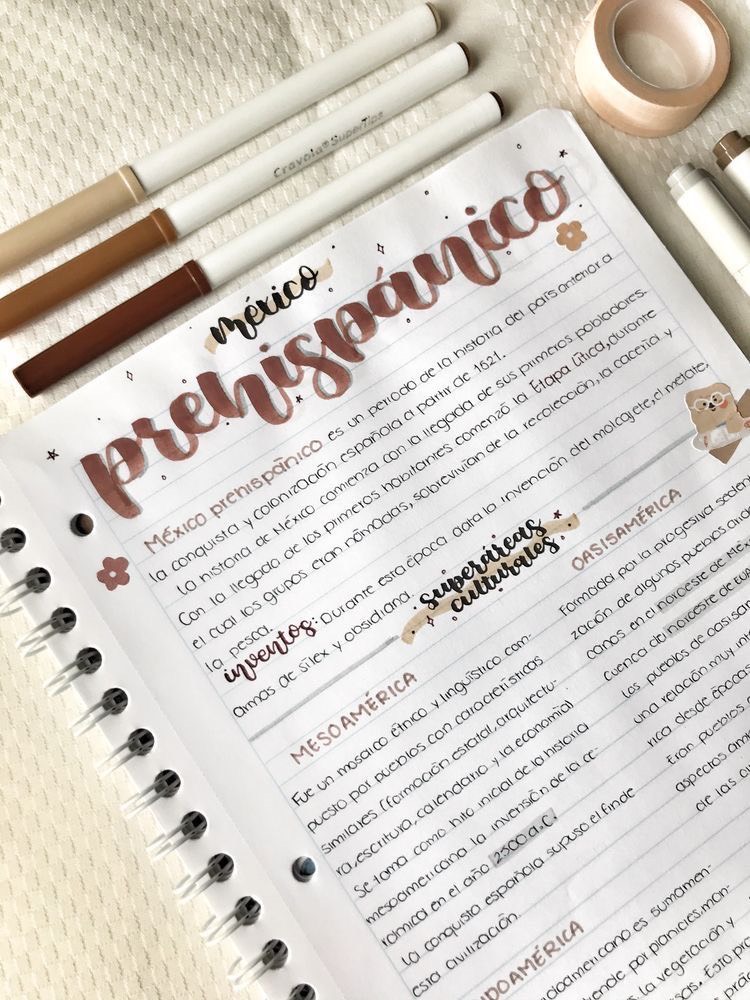 Crayola® SuperTips
méxico
prehispánico
MÉXICO prehispánico es un periodo de la historia del país anterior a
la conquista y colonización española a partir de 1521.
La historia de México comienza con la llegada de sus primeros pobladores.
Con la llegada de los primeros habitantes comenzó la Etapa lítica, durante
el cual los grupos eran nómadas, sobrevivían de la recolección, la cacería y
la pesca.
inventos: Durante esta época data la invención del molcajete, el metate,
armas de sílex y obsidiana.
superáreas
culturales
MESOAMÉRICA
Fue un mosaico étnico y lingüístico com-
puesto por pueblos con características
similares (formación estatal, arquitectu-
ra, escritura, calendario y la economía)
Se toma como hito inicial de la historia
mesoamericana la invensión de la ce-
rámica en el año 2500 a.C.
la conquista española supuso el fin de
esta civilización.
OASISAMÉRICA
Formada por la progresiva
zación de algunos pueblos
canos en el noroeste de
Cuenca del noroeste de
los pueblos de
una relación muy
rica desde épocas
Eran pueblos
aspectos
de las
es sumamen-
por planicies, mon-
la vegetación y